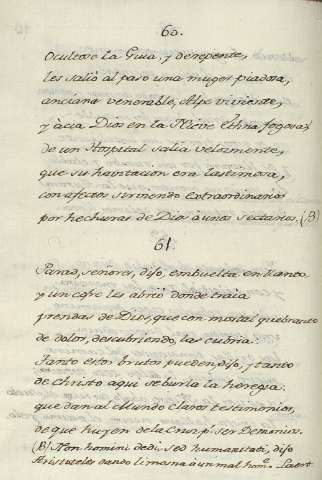 60.
Ocultose la Guia, y derepente,
les saliò al paso una muger piadosa,
anciana venerable, Alpe viviente,
y àcia Dios en la Nieve Ethna fogosa;
de un Hospital salia velozmente,
que su habitacion era lastimosa,
con afectos sirviendo extraordinarios
por hechuras de Dios à unos sectarios. (B)
61.
Parad, señores, dijo, embuelta en llanto
y un cofre les abriò donde traia
prendas de Dios, que con mortal quebranto
de dolor, descubriendo, las cubria:
Tanto estos brutos pueden, dijo, y tanto
de Christo aqui se burla la heregia:
que dan al Mundo claros testimonios,
de que huyen de la Cruz pr. ser Demonios.
(B) Non homini dedi, sed humanitati, dijo
Aristoteles dando limosna à un mal homê. Laert.